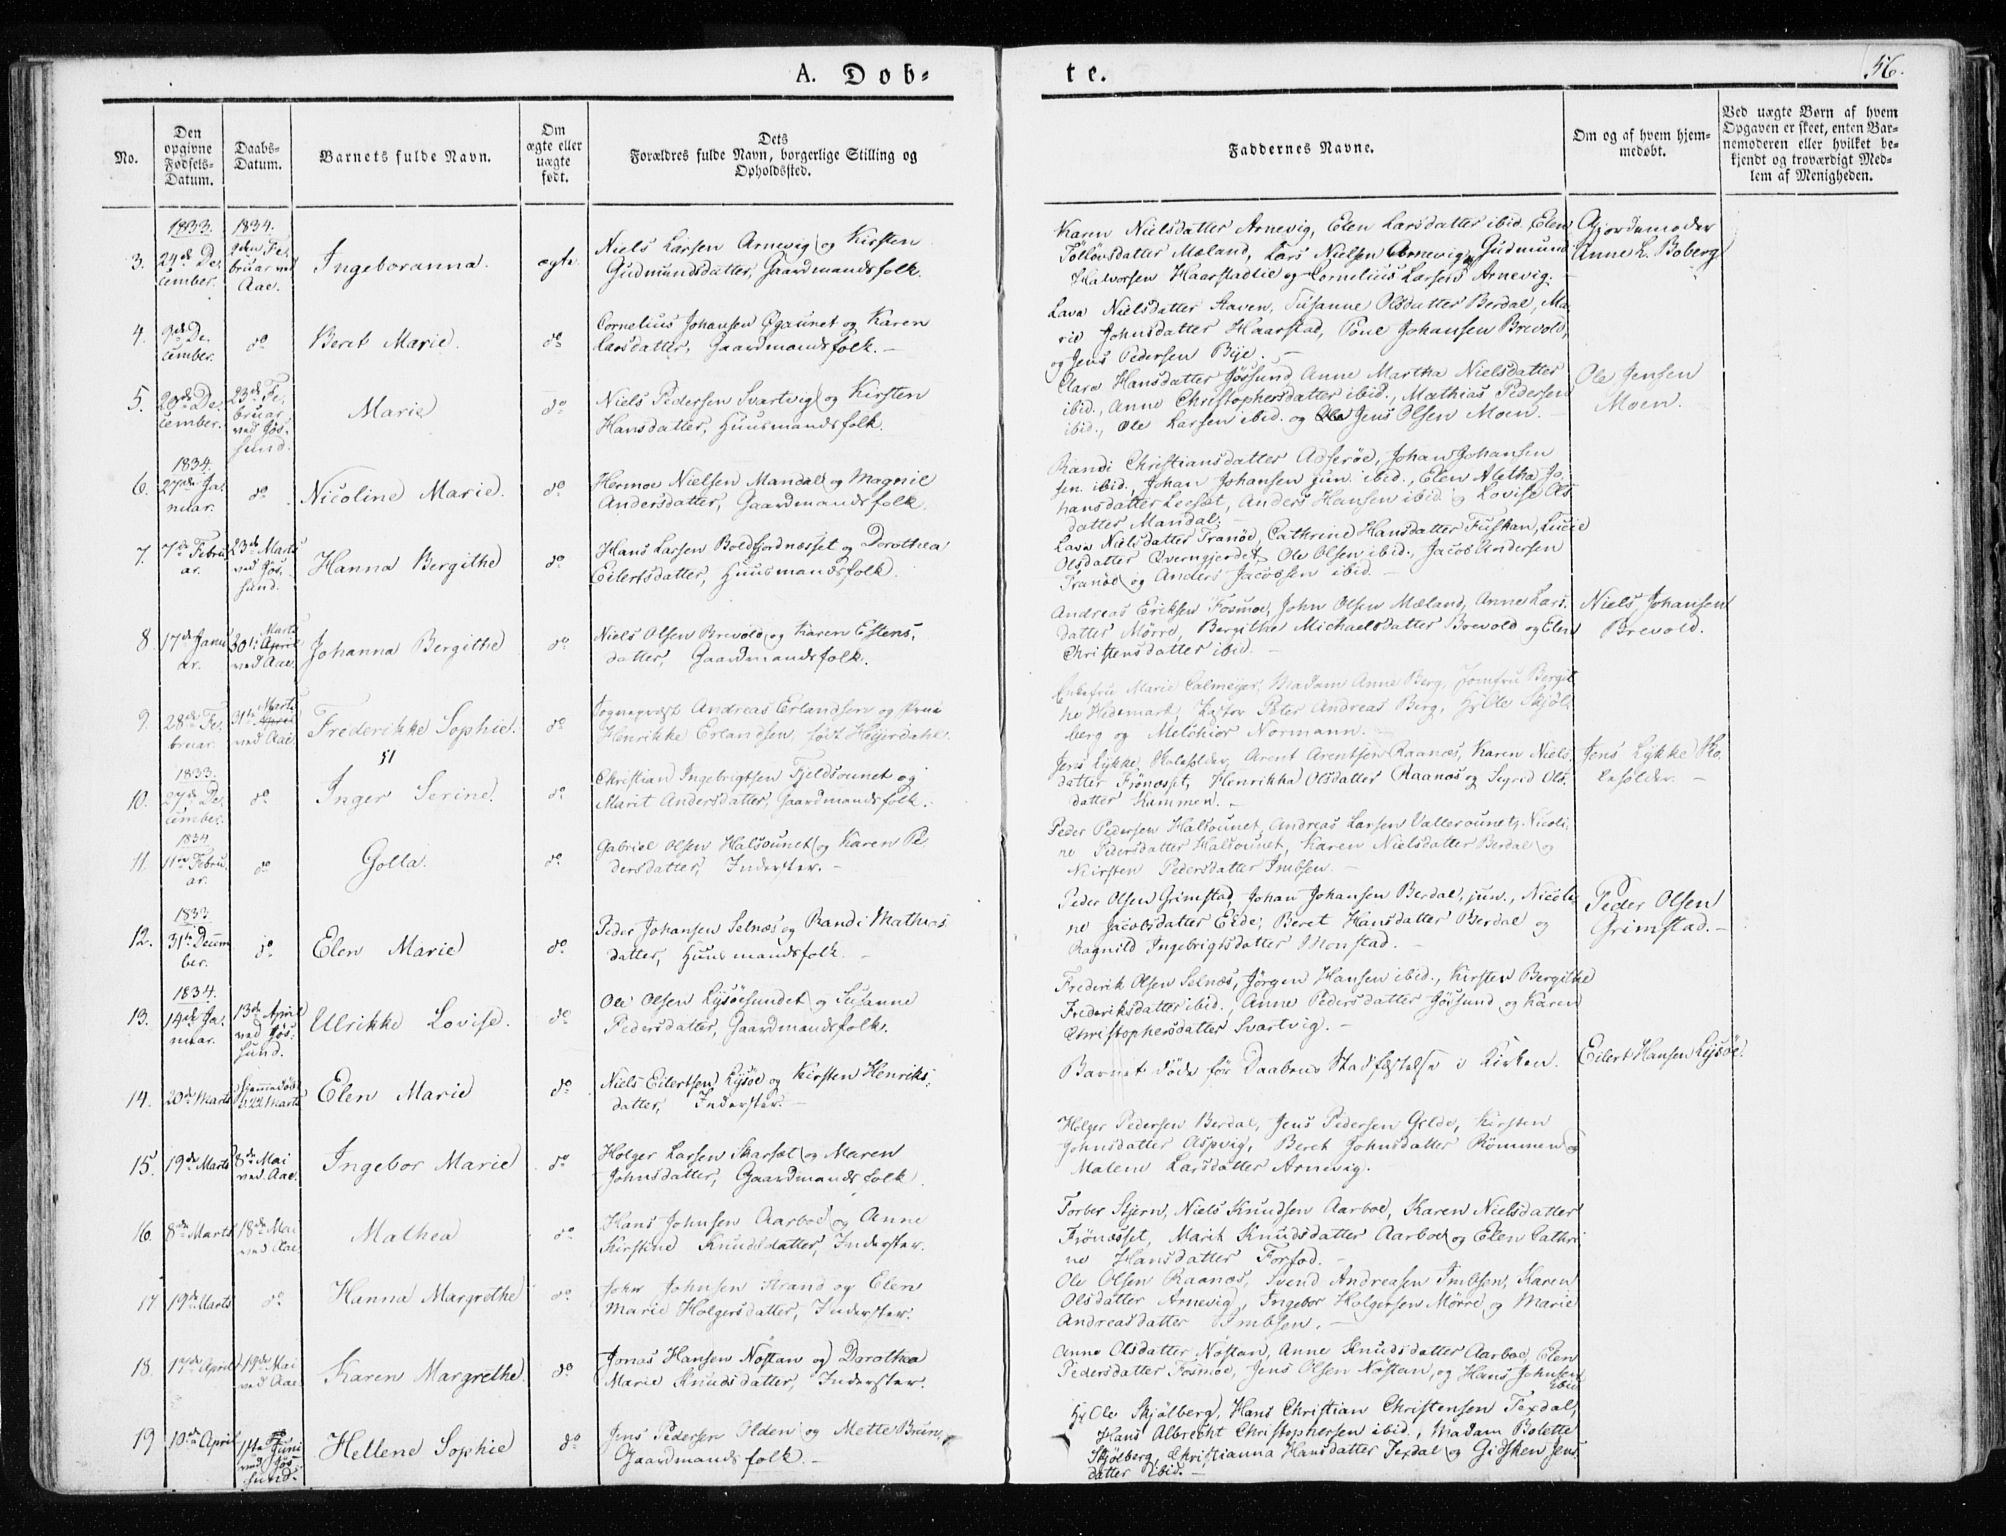 A. Døb-
te.
56.
No.
Den
opgivne
Fødsels-
Datum.
Daabs-
Datum.
Barnets fulde Navn.
Om
ægte eller
uægte
født.
Dets
Forældres fulde Navn, borgerlige Stilling og
Opholdssted.
Faddernes Navne.
Om og af hvem hjem-
medøbt.
Ved uægte Børn af hvem
Opgaven er skeet, enten Bar-
nemoderen eller hvilket be-
kjendt og troværdigt Med-
lem af Menigheden.
3.
1833.
24de De-
cember.
1834.
9den Fe-
bruar ved
Aae.
Ingeboranna.
ægte.
Niels Larsen Arnevig og Kirsten
Gudmundsdatter, Gaardmandsfolk.
Karen Nielsdatter Arnevig, Elen Larsdatter ibid. Elen
Tøløvsdatter Mæland, Lars Nielsen Arnevig, Gudmund
Halvorsen Haarstadlie og Cornelius Larsen Arnevig.
Gjordemoder
Anne L. Boberg
4.
9de De-
cember.
do
Beret Marie.
do
Cornelius Johansen Øgaunet og Karen
Larsdatter, Gaardmandsfolk. —
Lava Nielsdatter Staven, Susanne Olsdatter Berdal, Ma-
rie Johnsdatter Haarstad, Tone Johansen Brevold,
og Jens Pedersen Bye. —
5.
20de De-
cember.
23de Fe-
bruar
ved Jøs-
sund.
Marie
do
Niels Pedersen Svartvig og Kirsten
Hansdatter, Huusmandsfolk.
Clara Hansdatter Jøssund Anne Martha Nielsdatter
ibid., Anne Christophersdatter ibid., Mathias Pedersen
ibid., Ole Larsen ibid. og Jens Olsen Moen. —
Ole Jensen
Moen.
6.
1834.
27de Ja-
nuar.
do
Nicoline Marie.
do
Hermoe Nielsen Mandal og Magnil
Andersdatter, Gaardmandsfolk.
Randi Christiansdatter Adserøe, Johan Johansen
sen. ibid., Johan Johansen jun. ibid., Elen Aletha Jo-
hansdatter Leesæt, Anders Hansen ibid. og Lovise Ols-
datter Mandal. —
7.
7de Febru-
ar.
23de Marts
ved Jøs-
sund.
Hanna Bergithe
do
Hans Larsen Boldfjordnæsset og Dorothea
Eilertsdatter, Huusmandsfolk.
Lava Nielsdatter Tranöe, Cathrine Hansdatter Fuskan, Lucie
Olsdatter Qverngjerdet, Ole Olsen ibid., Jacob Andersen
Tranöe og Anders Jacobsen ibid. —
8.
17de Janu-
ar.
Marts
30te April
ved Aae.
Johanna Bergithe
do
Niels Olsen Brevold og Karen Estens-
datter, Gaardmandsfolk.
Andreas Eriksen Fosmoe, John Olsen Mæland, Anne Lars-
datter Mørre, Bergithe Michaelsdatter Brevold og Elen
Christensdatter ibid. —
Niels Johansen
Brevold.
9.
28de Fe-
bruar.
Marts
31te April
ved Aae.
Frederikke Sophie.
51
do
Sognepræst Andreas Erlandsen og
Henrikke Erlandsen, født Heyerdahl.
Enkefru Marie Calmeyer, Madam Anne Berg, Jomfru Bergit-
he Hedemark, Peter Andreas Berg, Hr Ole Skjøl-
berg og Melchior Normann. —
10.
1833.
27de De-
cember.
do
Inger Serine.
do
Christian Ingebrigtsen Fjeldsounet og
Marit Andersdatter, Gaardmandsfolk.
Jens Lykke Skoleholder, Arent Arentsen Raanæs, Karen Niels-
datter Frönæsset, Henrikka Olsdatter Raanæs og Sigrid Ols-
datter Kammen. —
Jens Lykke Sko-
leholder. —
11.
1834.
11te Febru-
ar.
do
Golla.
do
Gabriel Olsen Halsounet og Karen Pe-
dersdatter, Inderster. —
Peder Pedersen Halsounet, Andreas Larsen Vallersounet, Nicoli-
ne Pedersdatter Halsounet, Karen Nielsdatter Berdal og
Kirsten Pedersdatter Imbsen. —
12.
1833.
31te Decem-
ber.
do
Elen Marie
do
Peder Johansen Selnæs og Randi Mathias-
datter, Huusmandsfolk. —
Peder Olsen Grimstad, Johan Johansen Berdal, jun., Nicoli-
ne Jacobsdatter Eide, Beret Hansdatter Berdal og
Ragnild Ingebrigtsdatter Monstad. —
Peder Olsen
Grimstad. —
13.
1834.
14de Ja-
nuar.
13de April
ved Jøs-
sund.
Ulrikke Lovise.
do
Ole Olsen Lysöesundet og Susanne
Pedersdatter, Gaardmandsfolk.
Frederik Olsen Selnæs, Jørgen Hansen ibid., Kirsten Bergithe
Frederiksdatter ibid., Anne Pedersdatter Jøssund og Karen
Christophersdatter Svartvig. —
14.
20de Marts
Hjemmedøbt
d. 22 Marts
Elen Marie
do
Niels Eilertsen Lysöe og Kirsten Henriks-
datter, Inderster. —
Barnet døde før Daabens Stadfæstelse i Kirken.
Eilert Hansen Lysöe.
15.
19de Marts
8de Mai
ved Aae.
Ingebor Marie
do
Holger Larsen Skarsæt og Maren
Johnsdatter, Gaardmandsfolk.
Holger Pedersen Berdal, Jens Pedersen Gelde, Kirsten
Johnsdatter Aspvig, Beret Johnsdatter Römmen og
Malene Larsdatter Arnevig.
16.
8de Marts
18de Mai
ved Aae.
Mathea
do
Hans Johnsen Aarboe og Anne
Kirstine Knudsdatter, Inderster.
Torber Stjern, Niels Knudsen Aarboe, Karen Nielsdatter
Frönæsset, Marit Knudsdatter Aarboe og Elen Cathri-
ne Hansdatter Forfod. —
17
19de Marts
do
Hanna Margrethe
do
John Johnsen Strand og Elen
Marie Holgersdatter, Inderster.
Ole Olsen Raanæs, Svend Andreasen Imbsen, Karen
Olsdatter Arnevig, Ingebor Holgersen Mørre og Marie
Andreasdatter Imbsen. —
18.
17de April
19de Mai
ved Aae.
Karen Margrethe.
do
Jonas Hansen Nøstan og Dorothea
Marie Knudsdatter, Inderster.
Anne Olsdatter Nøstan, Anne Knudsdatter Aarboe, Elen
Pedersdatter Fosmoe, Jens Olsen Nøstan, og Hans Johnsen
ibid
19
10de April
1ste Juni
ved Jøs-
sund.
Hellene Sophie
do
Jens Pedersen Ilden og Mette Bruun,
Gaardmandsfolk. —
Hr Ole Skjølberg, Hans Christian Christensen Texdal,
Hans Albrecht Christophersen ibid., Madam Bolette
Skjølberg, Christianna Hansdatter Texdal og Gidsken Jens-
datter ibid. —